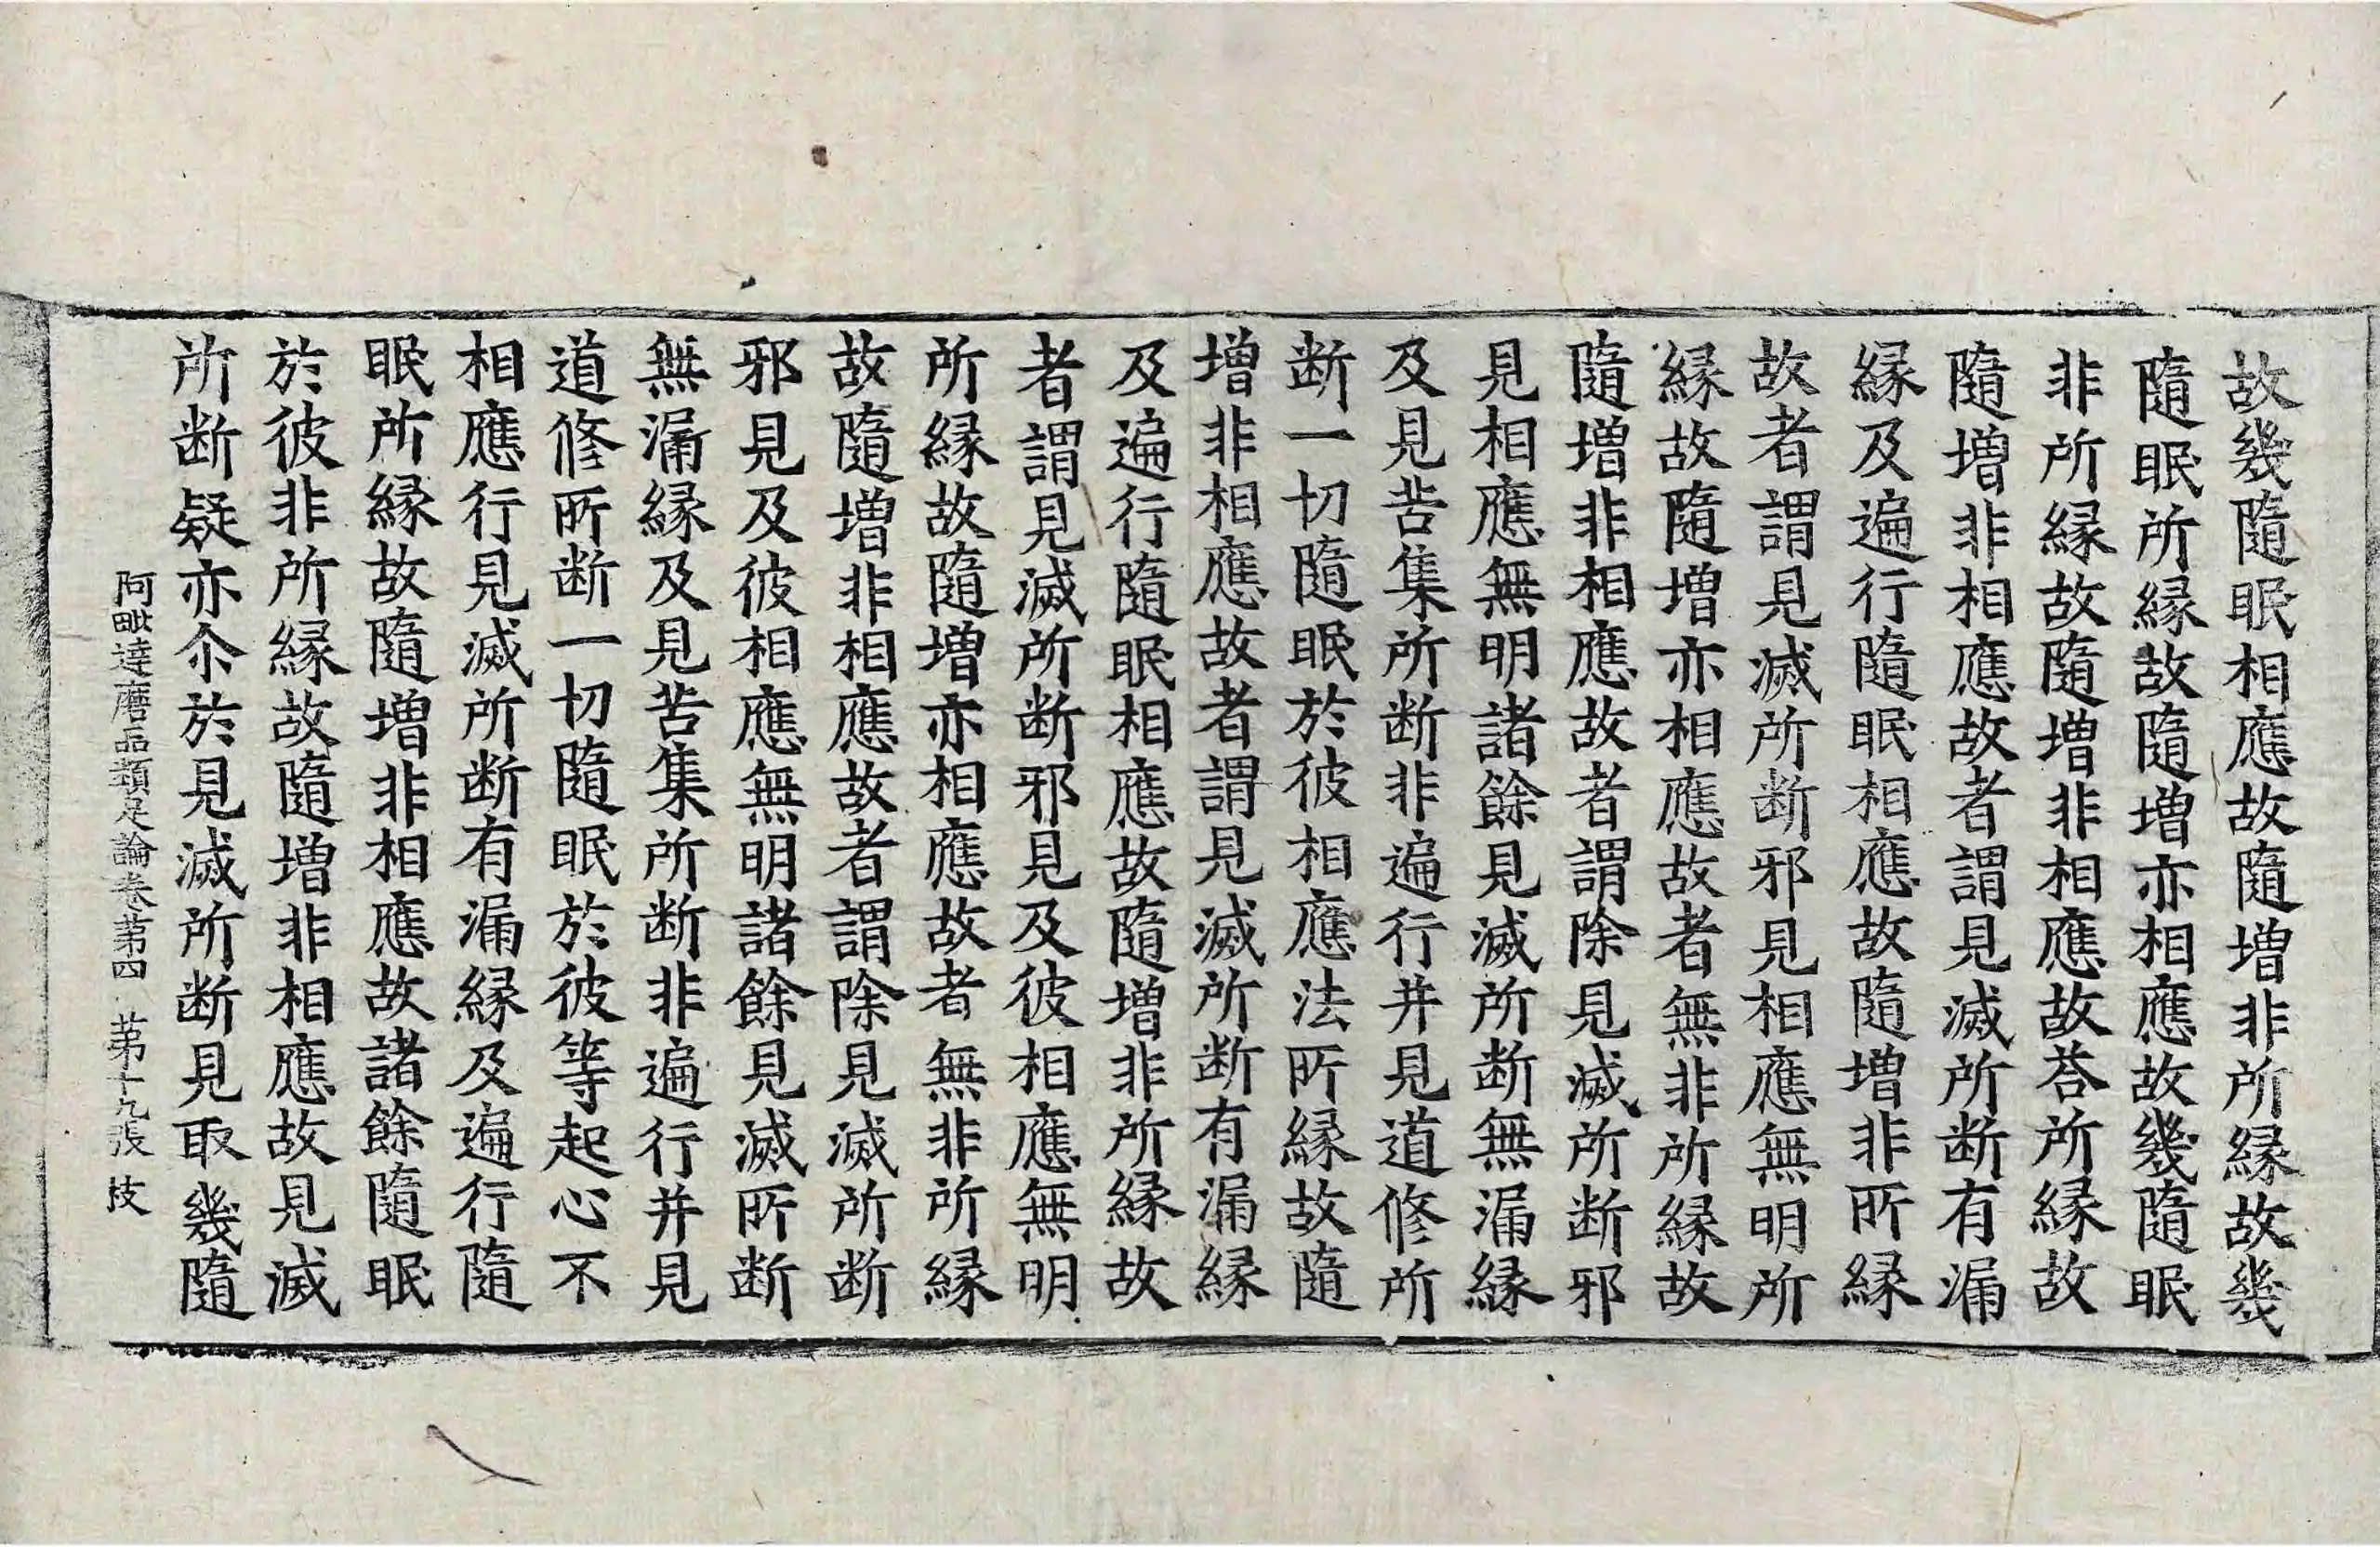 故幾隨眠相應故隨增非所緣故幾
隨眠所緣故隨增亦相應故幾隨眠
非所緣故隨增非相應故荅所緣故
隨增非相應故者謂見滅所断有漏
緣及遍行隨眠相應故隨增非所緣
故者謂見滅所断邪見相應無明所
緣故隨增亦相應故者無非所緣故
隨增非相應故者謂除見滅所断邪
見相應無明諸餘見滅所断無漏緣
及見苦集所断非遍行并見道修所
断一切隨眠於彼相應法所緣故隨
增非相應故者謂見滅所断有漏緣
及遍行隨眠相應故隨增非所緣故
者謂見滅所断邪見及彼相應無明
所緣故隨增亦相應故者無非所緣
故隨增非相應故者謂除見滅所断
邪見及彼相應無明諸餘見滅所断
無漏緣及見苦集所断非遍行并見
道修所断一切隨眠於彼等起心不
相應行見滅所断有漏緣及遍行隨
眠所緣故隨增非相應故諸餘隨眠
於彼非所緣故隨增非相應故見滅
所断疑亦尒於見滅所断見取幾隨
阿毗達磨品類足論卷苐四 苐十九張 枝